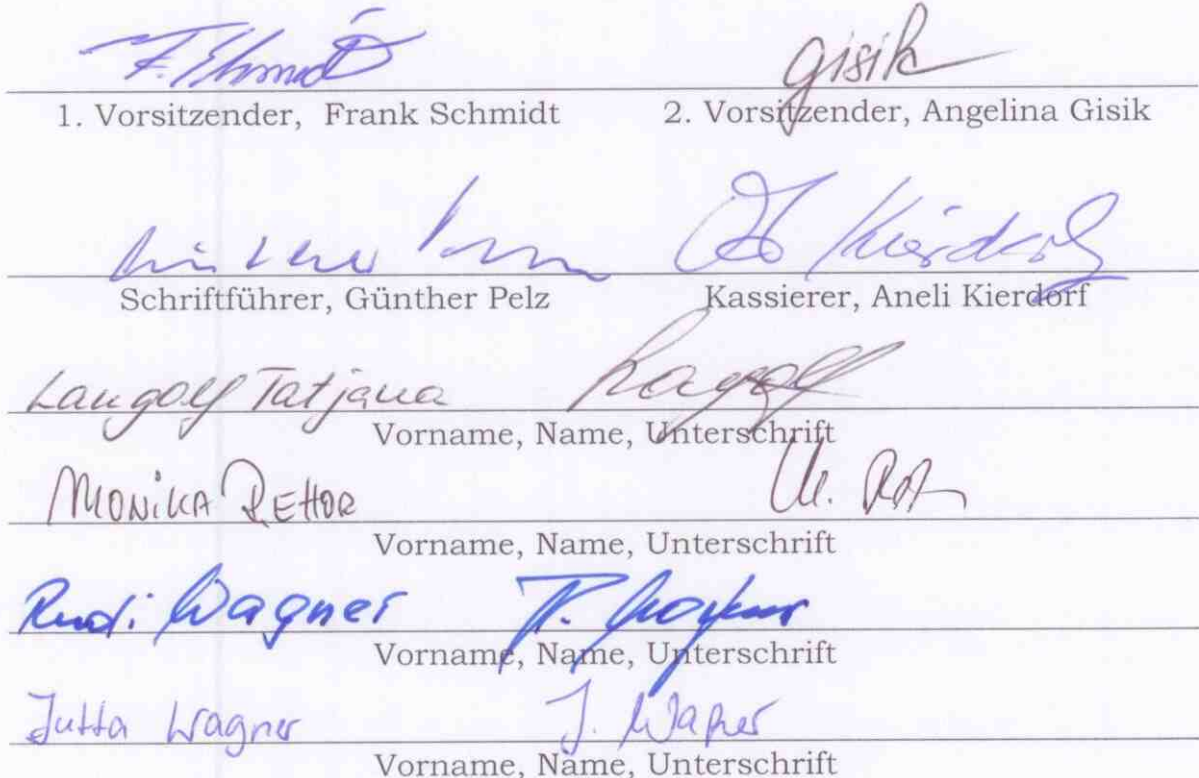 F. Schmidt Gisik
1. Vorsitzender, Frank Schmidt 2. Vorsitzender, Angelina Gisik
Kierdorf
Schriftführer, Günther Pelz Kassierer, Aneli Kierdorf
Langolf Tatjana Langolf
Vorname, Name, Unterschrift
MONIKA REHOR M.
Vorname, Name, Unterschrift
Rudi Wagner R. Wagner
Vorname, Name, Unterschrift
Jutta Wagner J. Wagner
Vorname, Name, Unterschrift